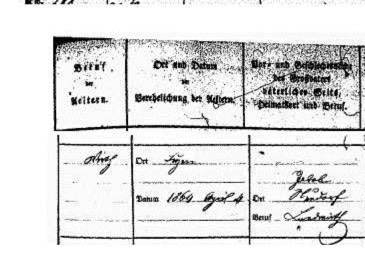 Beruf
der
Aeltern.
Ort und Datum
der
Verehelichung der Aeltern.
Vor- und Geschlechtsname
des Großvaters
väterlicher Seite,
Heimathort und Beruf.
Ort
Jakob
Datum 1864 April 4.
Ort
Beruf Landwirth